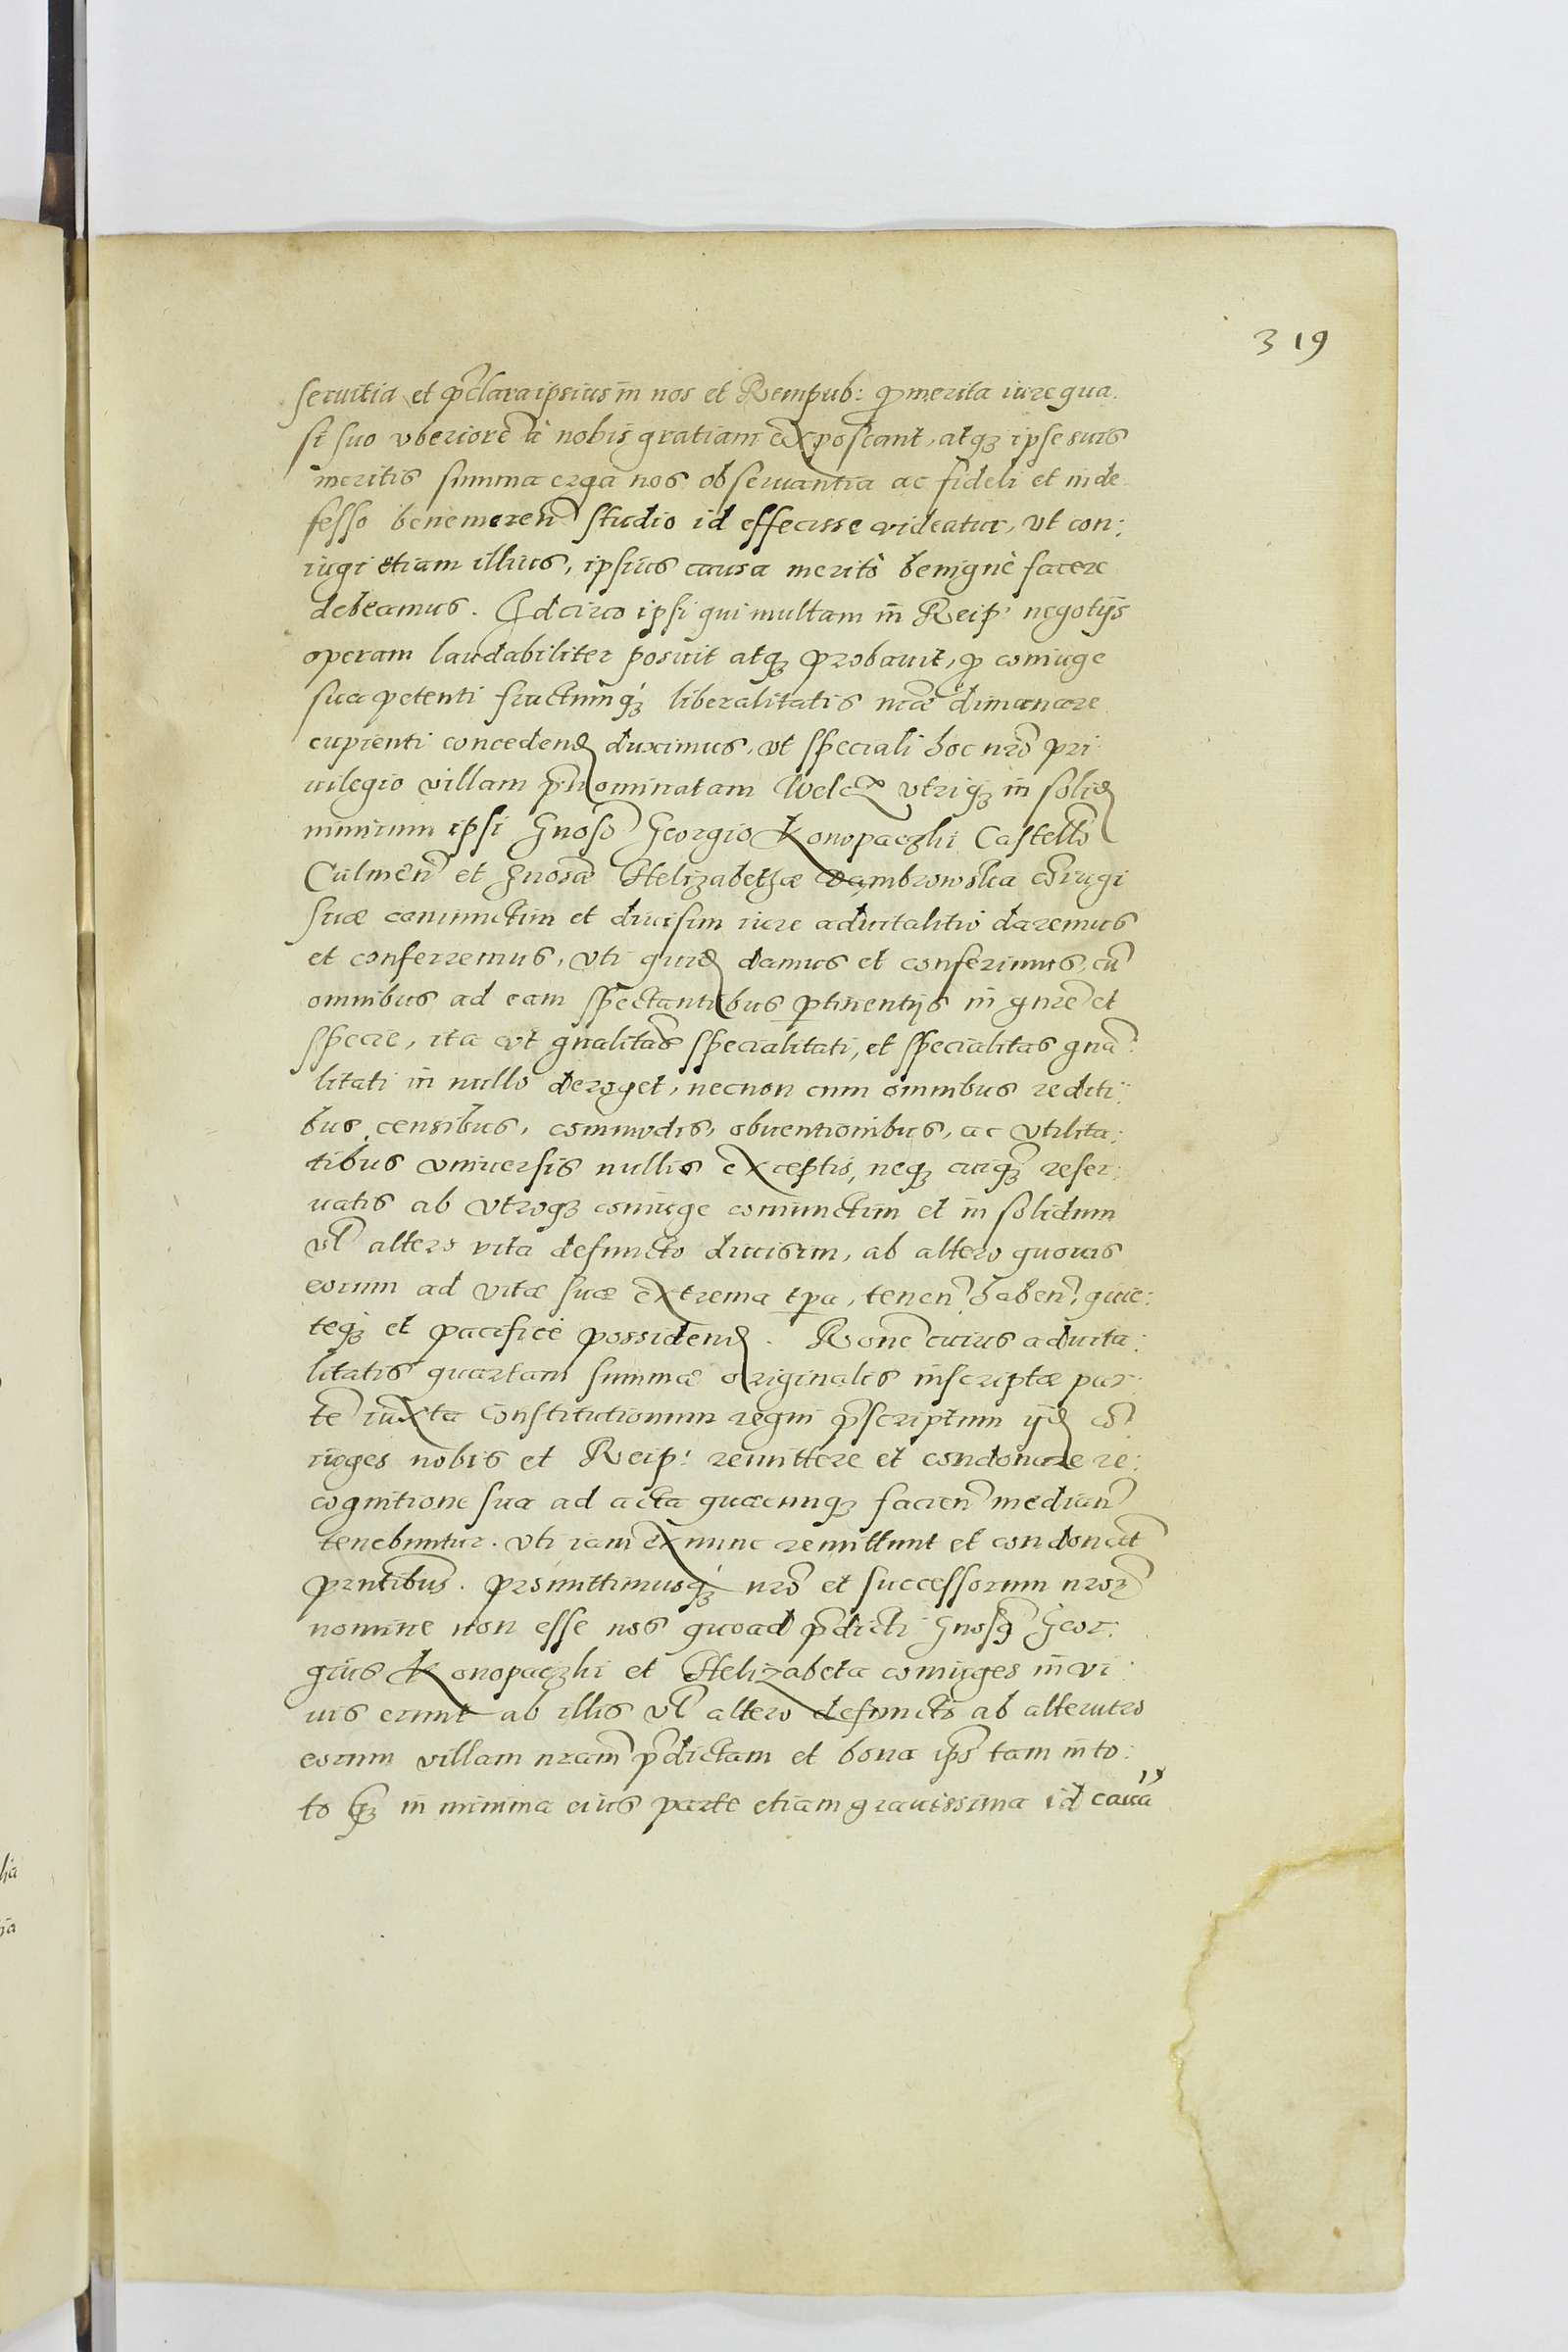 319
seruitia et p̃clara ipsius in nos et Rempub: ꝓmerita iure qua
si suo vberiorẽ à nobis gratiam exposcant, atqꝫ ipse suis
meritis summa erga nos obseruantia ac fideli et inde
fesso benemeren̄ studio id effecisse videatur, vt con:
iugi etiam illius, ipsius causa meritò benignè facere
debeamus. Idcirco ipsi qui multam in Reip: negotijs
operam laudabiliter posuit atqꝫ probauit, ꝓ coniuge
sua petenti fructumqꝫ liberalitatis nr̃æ dimanare
cupienti concedend duximus, vt speciali hoc nrõ pri
uilegio villam p̃nominatam Welcz vtriqꝫ in solid
nimirum ipsi Gnosõ Georgio Konopaczki Castellõ
Culmẽn et Gnosæ Helizabethæ Dambrowska cõiugi
suæ coniunctim et diuisim iure aduitalitio daremus
et conferremus, vti quid damus et conferimus, cũ
omnibus ad eam spectantibus ꝑtinentijs in gn̄re et
specie, ita vt gn̄alitas specialitati, et specialitas gn̄a
litati in nullo deroget, necnon cum omnibus rediti:
bus, censibus, commodis, obuentionibus, ac vtilita:
tibus vniuersis nullis exceptis, neqꝫ cuiqꝫ reser:
uatis ab vtroqꝫ coniuge coniunctim et in solidum
vl̃ altero vita defuncto diuisim, ab altero quouis
eorum ad vitæ suæ extrema tp̃a, tenen̄ haben̄, quie:
teqꝫ et pacificè possidend. Rõne cuius aduita:
litatis quartam summæ originalis inscriptæ par
tẽ iuxta Constitutionum regni p̃scriptum ijd cõ
iuges nobis et Reip: remittere et condonare re:
cognitione sua ad acta quæcunqꝫ facien̄ median̄
tenebuntur. vti iam ex nunc remittunt et condonant
p̃ntibus. promittimusqꝫ nrõ et successorum nrõꝝ
nomine non esse nos quoad p̃dicti Gnosi Geor:
gius Konopaczki et Helizabeta coniuges in vi:
uis erunt ab illis vl̃ altero defuncto ab alterutro
eorum villam nr̃am p̃dictam et bona ip̃a tam in to:
to qꝫ in minima eius parte etiam grauissima id cauã